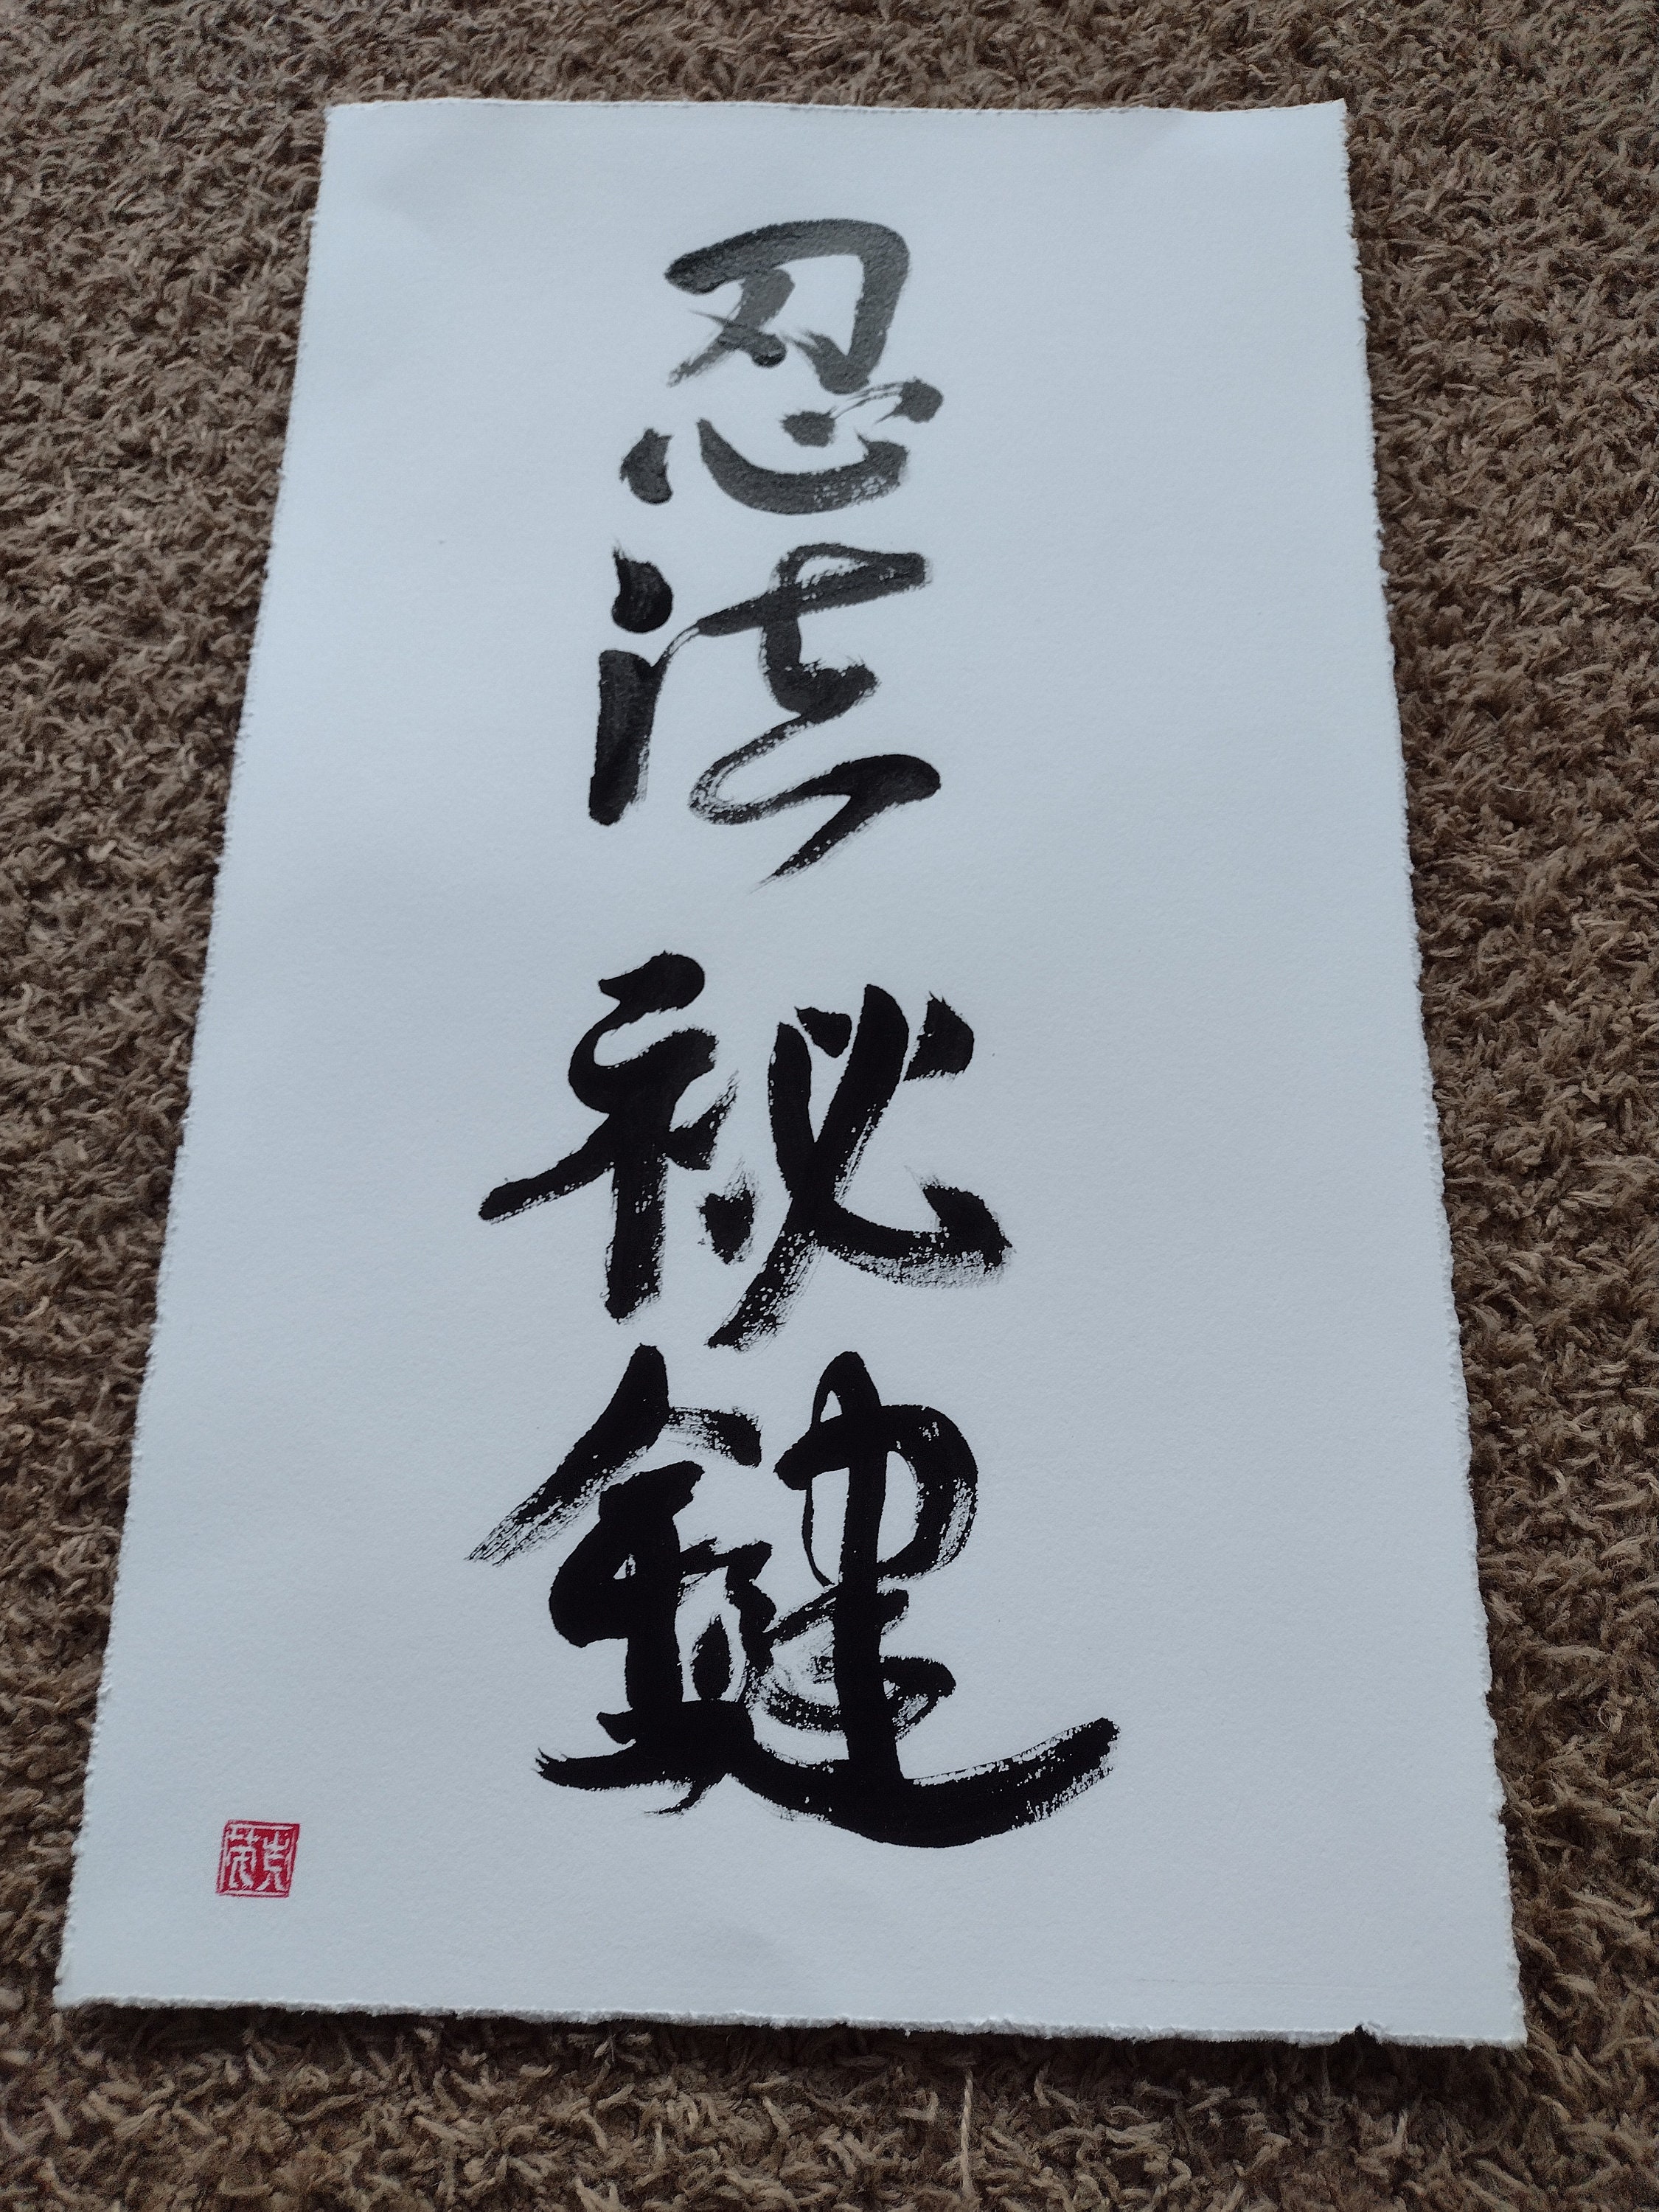 忍法秘鍵